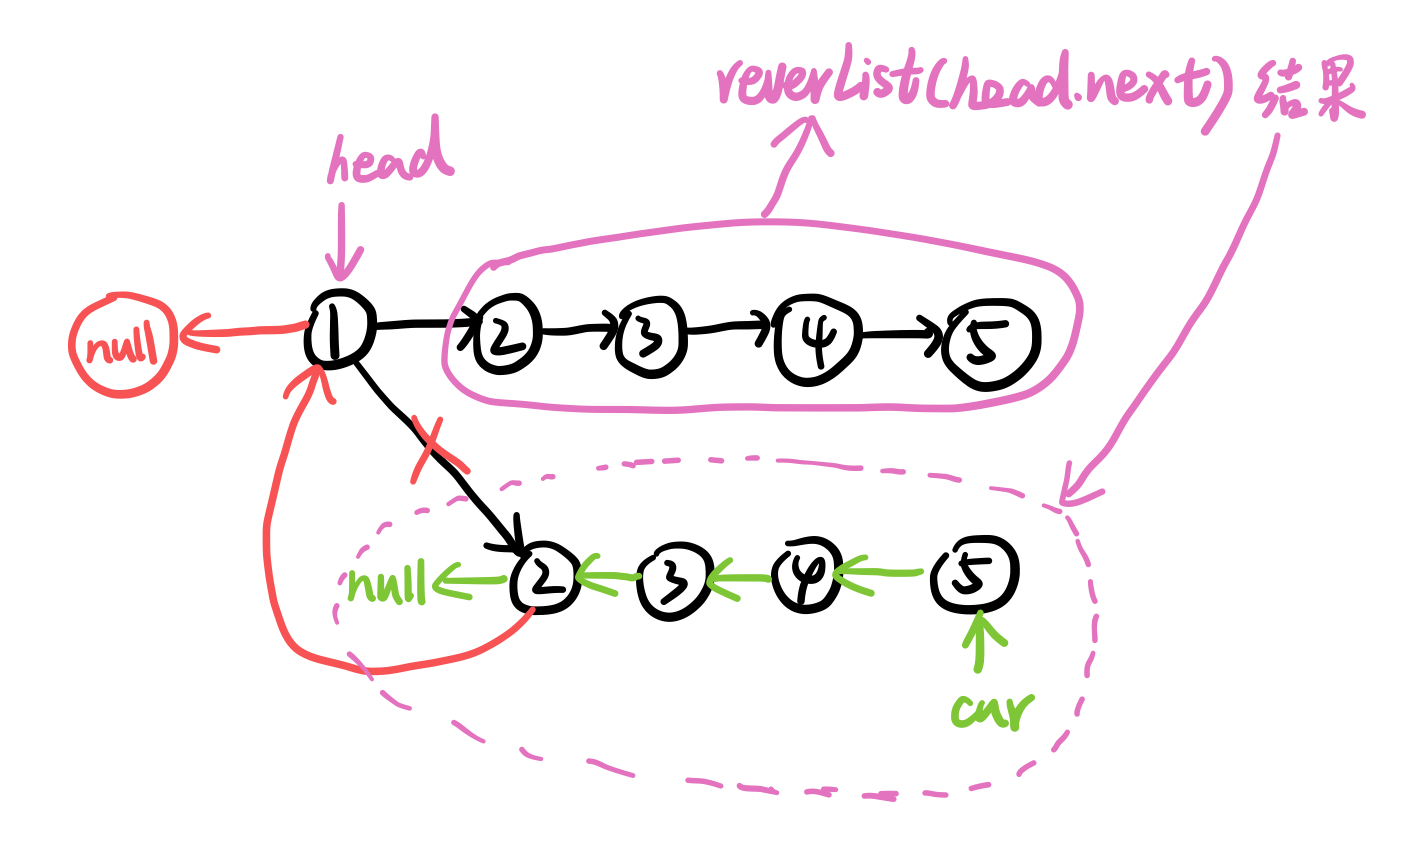 reverList(head.next) 结果
head
null 1 2 3 4 5
null 2 3 4 5
cur